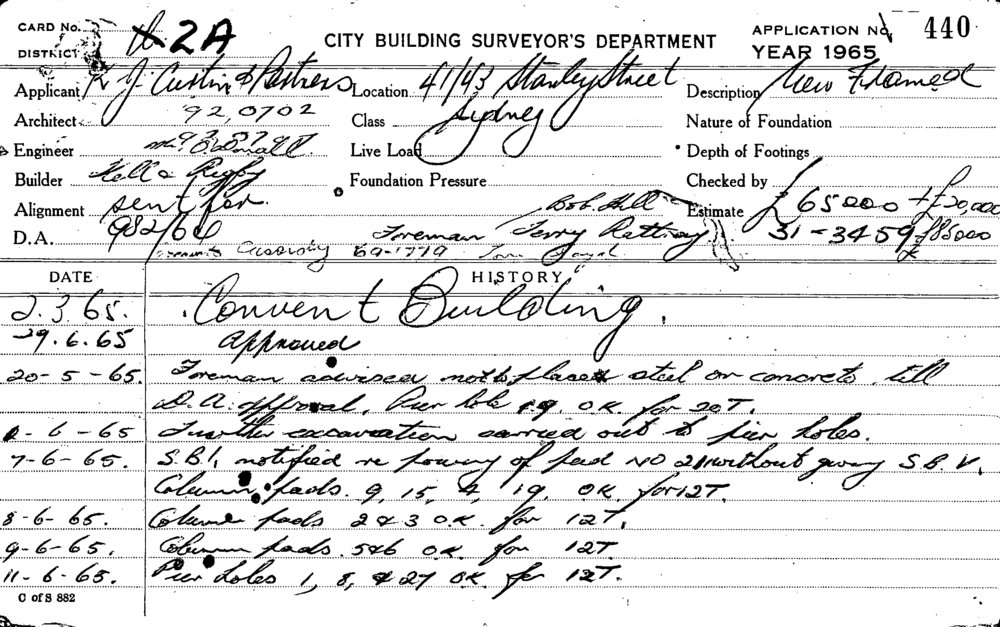 CARD No.
DISTRICT 2A
CITY BUILDING SURVEYOR'S DEPARTMENT
APPLICATION No. 440
YEAR 1965
Applicant K. J. Curtin & Partners Location 41/43 Stanley Street Description New Framed
Architect 92,0702 Class Sydney Nature of Foundation
Engineer Live Load Depth of Footings
Builder Kell & Rigby Foundation Pressure Checked by
Alignment sent for. Bob Hill Estimate £65000 + £20,000
D.A. 982/64 Foreman Terry 31-3459 £85000
Cassidy 69-1779 Tom
DATE HISTORY
2.3.65. Convent Building.
29.6.65 Approved
20-5-65. Foreman advised not to place steel or concrete till
D.A. approval. Pier hole 19. OK. for 20T.
6-65 Further excavation carried out to pier holes.
7-6-65. S.B.I. notified re pouring of pad NO 21 without giving S.B.V.
Column pads. 9, 15, 4, 19, OK. for 12T.
8-6-65. Column pads 2 & 3 O.K. for 12T.
9-6-65. Column pads. 5&6 OK. for 12T
11-6-65. Pier holes 1, 8, & 27 OK. for 12T.
C of S 882